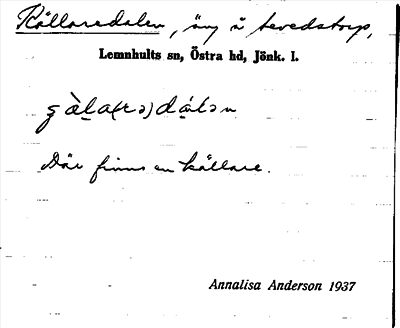 Källaredalen, äng å Sevedstorp,
Lemnhults sn, Östra hd, Jönk. l.
Där finns en källare.
Annalisa Anderson 1937